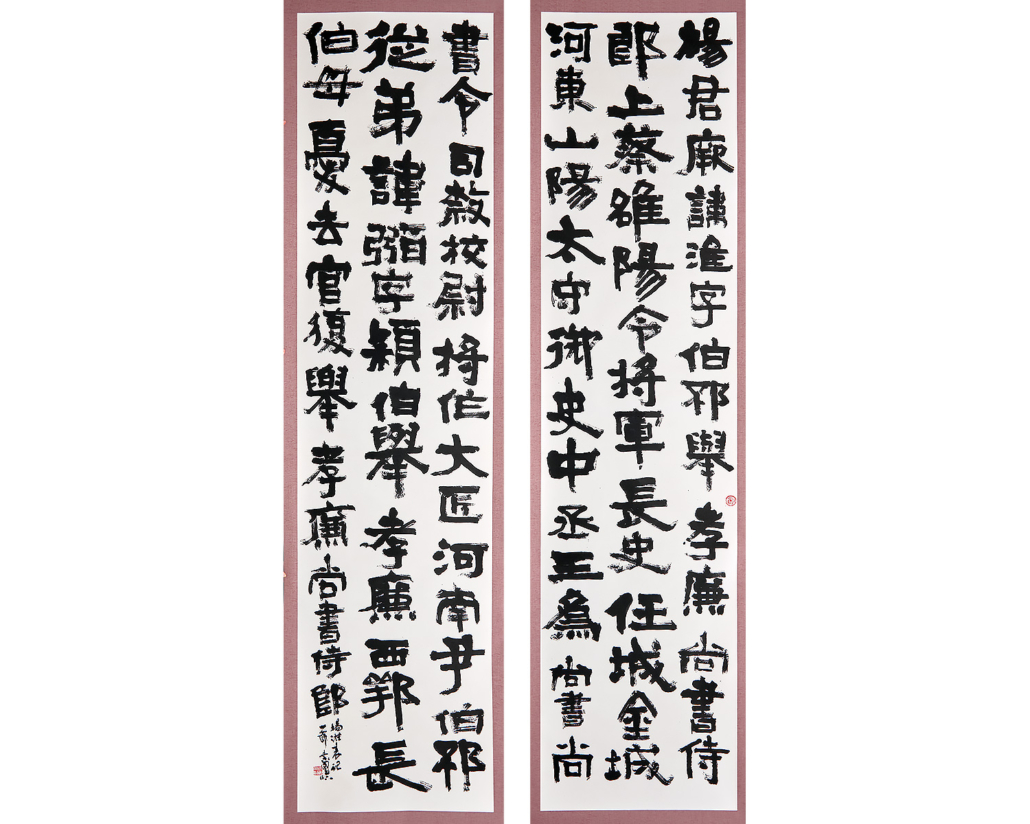 楊君厥諱淮字伯邳舉孝廉尚書侍
郎上蔡雒陽令將軍長史任城金城
河東山陽太守御史中丞三爲尚書尚
書令司隸校尉將作大匠河南尹伯邳
從弟諱弼字穎伯舉孝廉西鄂長
伯母憂去官復舉孝廉尚書侍郎
楊淮表記
一節